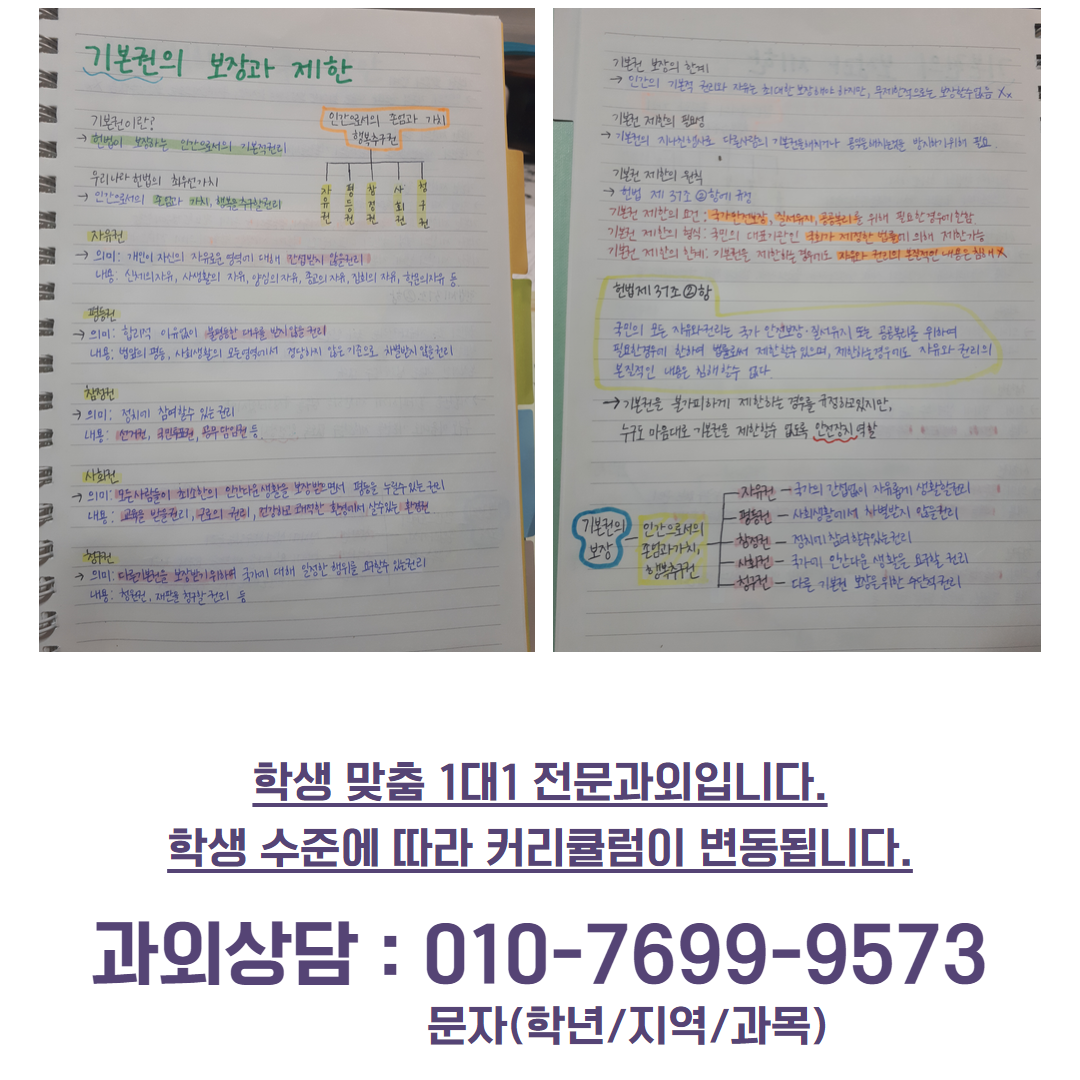 기본권의 보장과 제한
기본권이란?
→ 헌법이 보장하는 인간으로서의 기본적권리
우리나라 헌법의 최우선가치
→ 인간으로서의 존엄과 가치, 행복을추구할권리
인간으로서의 존엄과 가치
행복추구권
자유권 평등권 참정권 사회권 청구권
자유권
→ 의미: 개인이 자신의 자유로운 영역에 대해 간섭받지 않을권리
내용: 신체의자유, 사생활의 자유, 양심의자유, 종교의자유, 집회의 자유, 학문의자유 등
평등권
→ 의미: 합리적 이유없이 불평등한 대우를 받지않을 권리
내용: 법앞의 평등, 사회생활의 모든영역에서 정당하지 않은 기준으로 차별받지 않을권리
참정권
→ 의미: 정치에 참여할수 있는 권리
내용: 선거권, 국민투표권, 공무담임권 등
사회권
→ 의미: 모든사람들이 최소한의 인간다운생활을 보장받으면서 평등을 누릴수있는 권리
내용: 교육을 받을권리, 근로의 권리, 건강하고 쾌적한 환경에서 살수있는 환경권
청구권
→ 의미: 다른기본권을 보장받기위하여 국가에 대해 일정한 행위를 요구할수 있는권리
내용: 청원권, 재판을 청구할 권리 등
기본권 보장의 한계
→ 인간의 기본적 권리와 자유는 최대한 보장해야 하지만, 무제한적으로는 보장할수없음 X x
기본권 제한의 필요성
→ 기본권의 지나친행사로 다른사람의 기본권을해치거나 공익을해치는것을 방지하기위해 필요
기본권 제한의 원칙
→ 헌법 제 37조 ②항에 규정
기본권 제한의 요건: 국가안전보장, 질서유지, 공공복리를 위해 필요한경우에 한함
기본권 제한의 형식: 국민의 대표기관인 국회가 제정한 법률에 의해 제한가능
기본권 제한의 한계: 기본권을 제한하는 경우에도 자유와 권리의 본질적인 내용은 침해 X
헌법 제 37조 ②항
국민의 모든 자유와권리는 국가 안전보장·질서유지 또는 공공복리를 위하여
필요한경우에 한하여 법률로써 제한할수있으며, 제한하는경우에도 자유와 권리의
본질적인 내용은 침해할수 없다.
→ 기본권을 불가피하게 제한하는 경우를 규정하고있지만,
누구도 마음대로 기본권을 제한할수 없도록 안전장치 역할
기본권의 보장
인간으로서의 존엄과가치, 행복추구권
자유권 — 국가의 간섭없이 자유롭게 생활할권리
평등권 — 사회생활에서 차별받지 않을권리
참정권 — 정치에 참여할수있는권리
사회권 — 국가에 인간다운 생활을 요구할 권리
청구권 — 다른 기본권 보장을위한 수단적 권리
학생 맞춤 1대1 전문과외입니다.
학생 수준에 따라 커리큘럼이 변동됩니다.
과외상담 : 010-7699-9573
문자(학년/지역/과목)